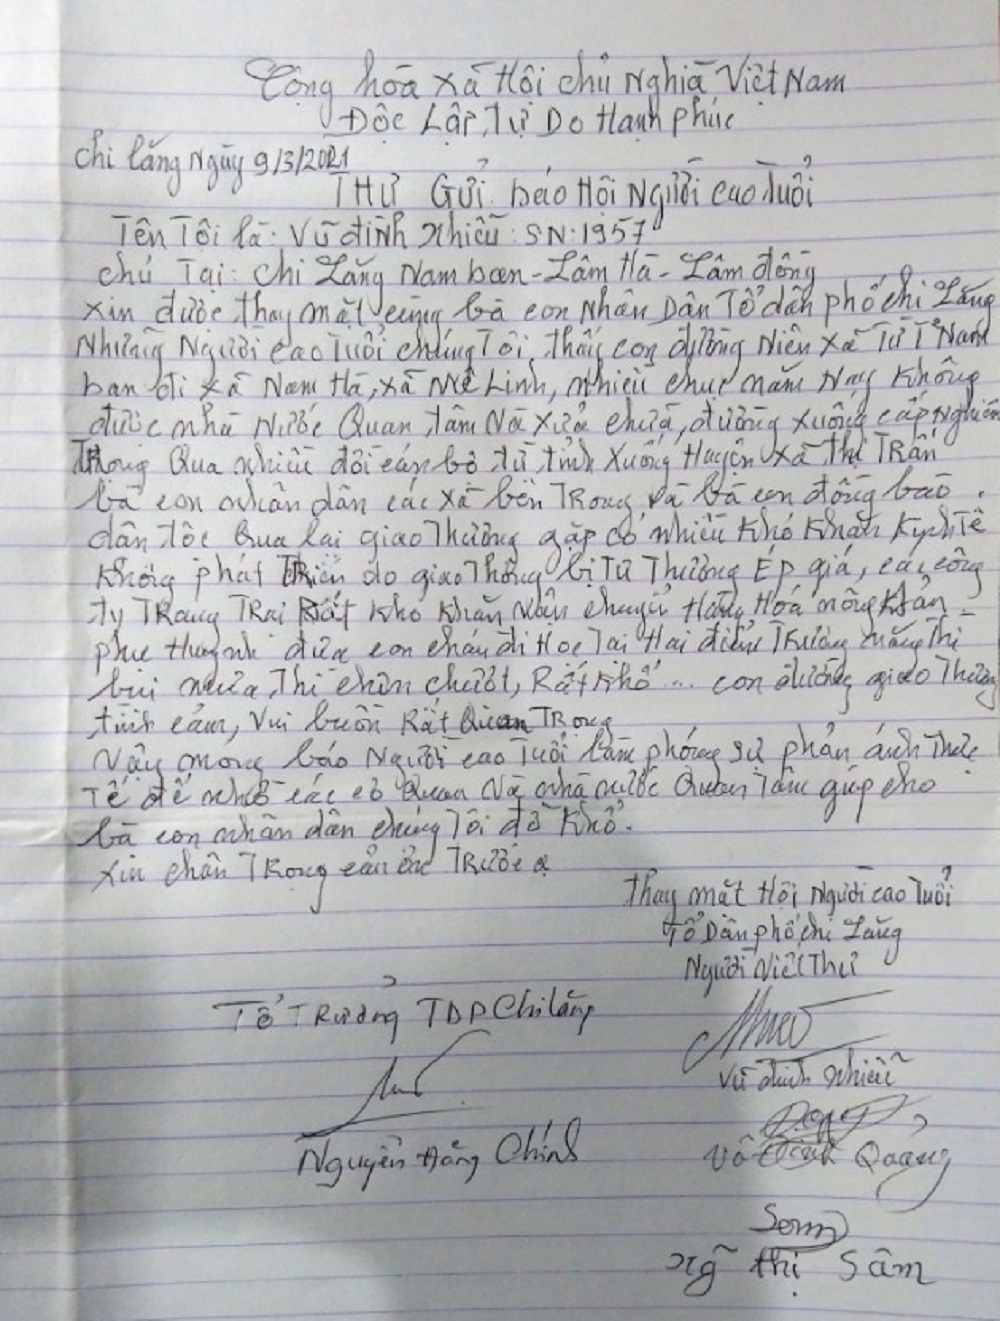 Cộng hòa xã Hội chủ Nghĩa Việt Nam
Độc Lập, Tự Do Hạnh phúc
chi lăng Ngày 9/3/2021
THƯ Gửi báo Hội Người cao Tuổi
Tên Tôi là: Vũ đình Nhiễu: SN: 1957
chú Tại: chi Lăng Nam ban - Lâm Hà - Lâm đồng
xin được thay mặt cùng bà con Nhân Dân Tổ dân phố chi Lăng
Những Người cao Tuổi chúng Tôi, thấy con đường Niên xã Từ TT Nam
ban đi xã Nam Hà, xã Mê Linh, nhiều chục năm Nay không
được nhà Nước Quan tâm Và xửa chữa, đường xuống cấp Nghiêm
Trọng Qua nhiều đời cán bộ từ tỉnh xuống Huyện xã thị Trấn
bà con nhân dân các xã bên Trong Và bà con đồng bào
dân tộc Qua lại giao Thương gặp có nhiều khó khăn kinh Tế
không phát Triển do giao Thông bị Tư Thương Ép giá, các công
ty Trang Trại Rất khó khăn Vận chuyển Hàng Hoá nông sản
phụ Huynh đưa con cháu đi Học Tại Hai điểm Trường nắng Thì
bụi mưa, Thì chơn chượt, Rất khổ ... con đường giao Thương
tình cảm, vui buồn Rất Quan Trọng
Vậy mong báo Người cao Tuổi làm phóng sự phản ánh Thực
Tế để nhờ các cơ Quan Và nhà nước Quan Tâm giúp cho
bà con nhân dân chúng Tôi đỡ khổ.
xin chân Trọng cảm ơn Trước ạ
Thay mặt Hội Người cao Tuổi
Tổ Dân phố chi Lăng
Người Viết Thư
Tổ Trưởng TDP Chi lăng
Vũ đình Nhiễu
Nguyễn Đăng Chính
Võ Quảng
Ng thị Sâm